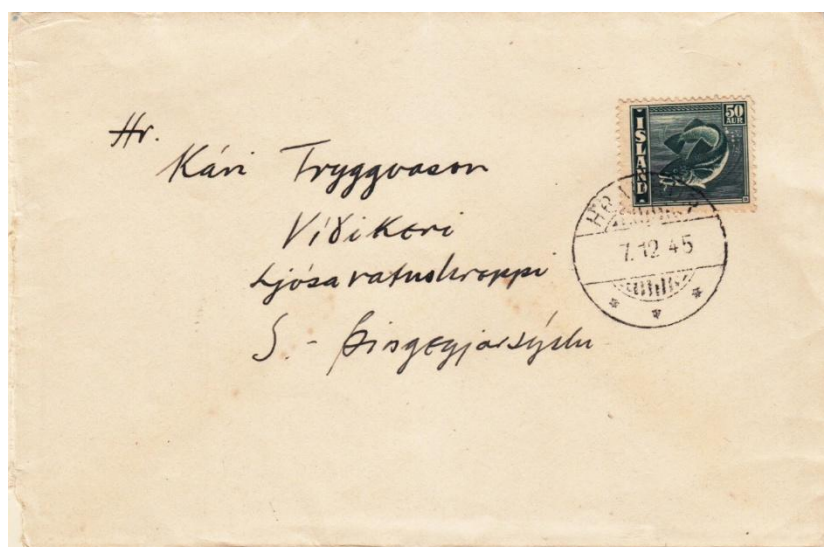 Hr.
Kári Tryggvason
Víðikeri
Ljósavatnshreppi
S. - Þingeyjarsýslu
50
AUR
ISLAND
7.12 45